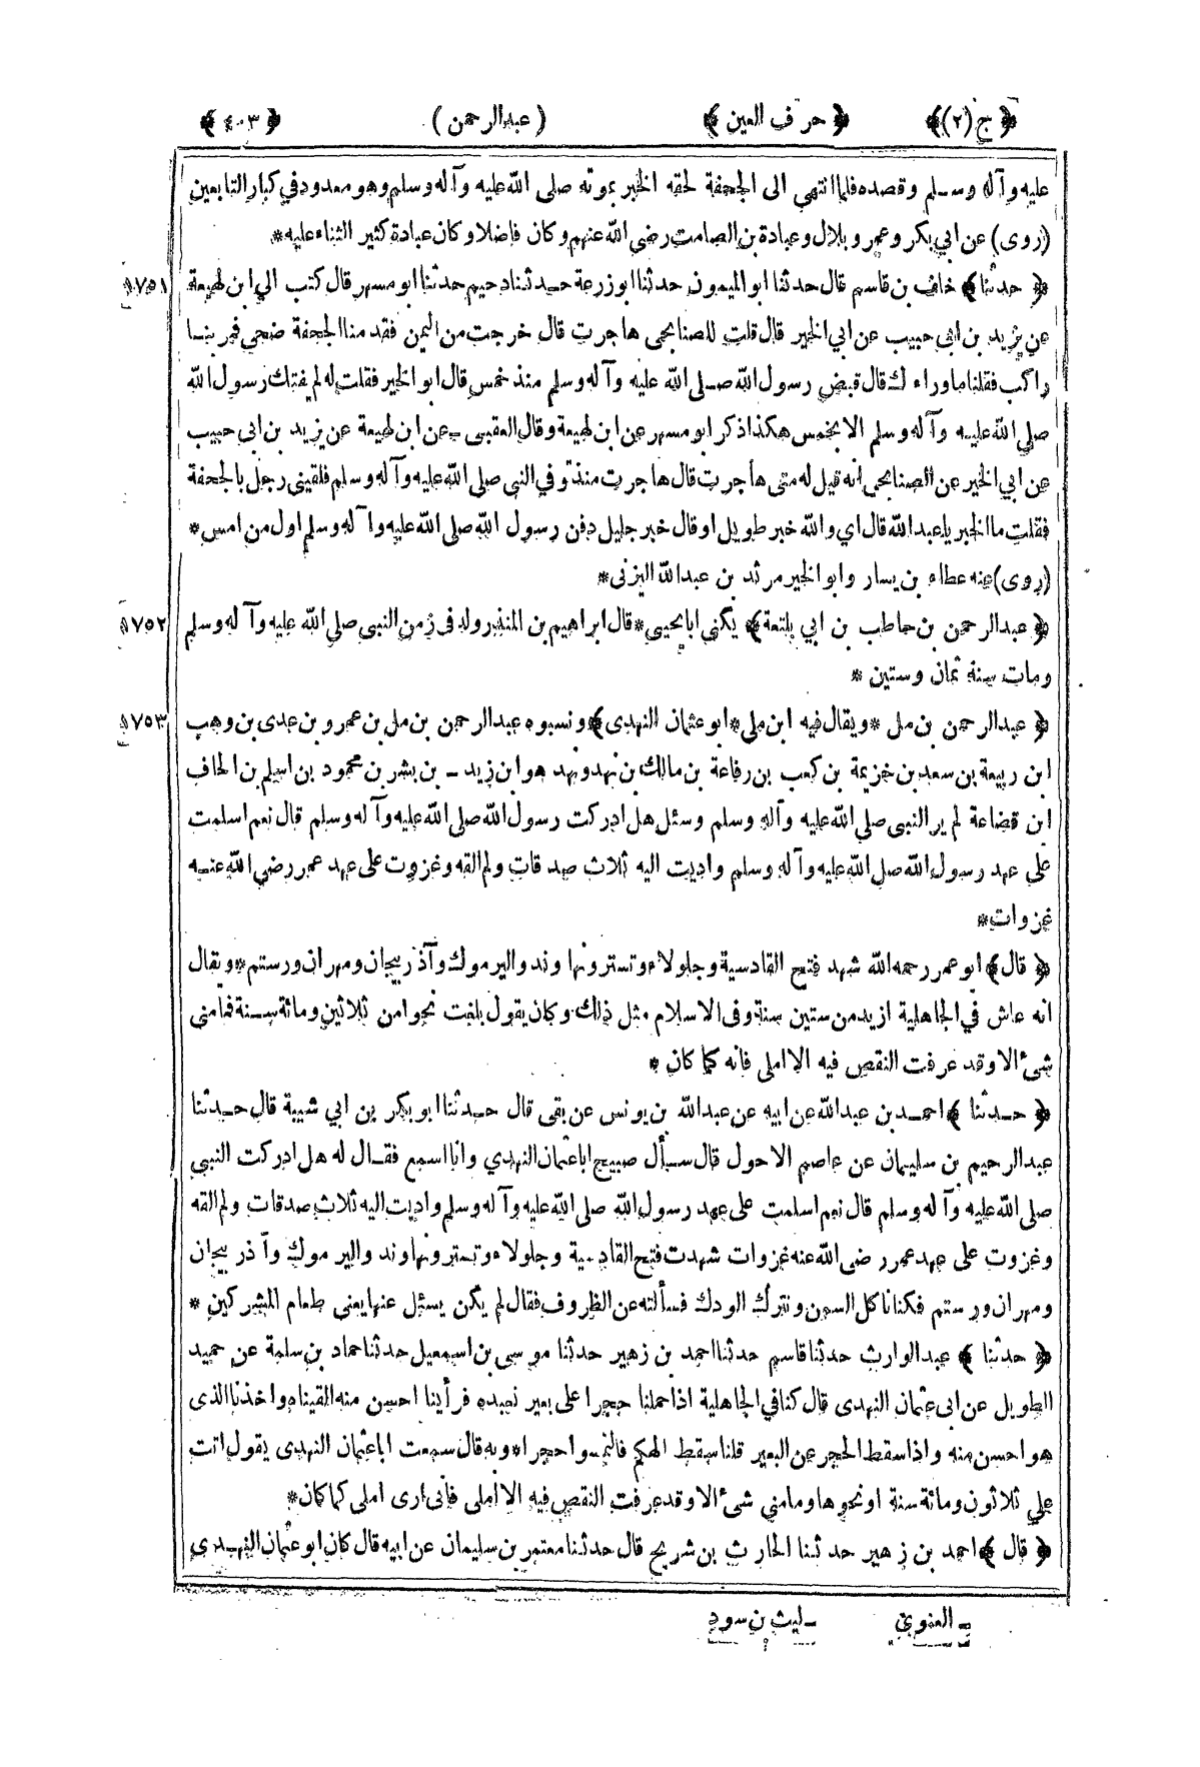 ﴿ ج (٢) ﴾ ﴿ حرف العين ﴾ (عبدالرحمن) ﴿ ٤٠٣ ﴾
عليه وآله وسلم وقصده فلما انتهى الى الجحفة لحقه الخبر بموته صلى الله عليه وآله وسلم وهو معدود في كبار التابعين
(روى) عن ابي بكر وعمر وبلال وعبادة بن الصامت رضي الله عنهم وكان فاضلا وكان عبادة كثير الثناء عليه*
﴿ حدثنا ﴾ خلف بن قاسم قال حدثنا ابو الميمون حدثنا ابوزرعة حدثنا دحيم حدثنا ابو مسهر قال كتب الي ابن لهيعة ١٧٥١
عن يزيد بن ابي حبيب عن ابي الخير قال قلت للصنابحى هاجرت قال خرجت من اليمن فقدمنا الجحفة ضحى فمر بنا
راكب فقلنا ما وراءك قال قبض رسول الله صلى الله عليه وآله وسلم منذ خمس قال ابو الخير فقلت له لم يفتك رسول الله
صلى الله عليه وآله وسلم الا بخمس هكذا ذكر ابو مسهر عن ابن لهيعة وقال العقبى ـ عن ابن لهيعة عن يزيد بن ابي حبيب
عن ابي الخير عن الصنابحى انه قيل له متى هاجرت قال هاجرت منذ توفي النبي صلى الله عليه وآله وسلم فلقيني رجل بالجحفة
فقلت ما الخبر يا عبد الله قال اي والله خبر طويل او قال خبر جليل دفن رسول الله صلى الله عليه وآله وسلم اول من امس *
(روى) عنه عطاء بن يسار وابو الخير مرثد بن عبد الله اليزنى*
﴿ عبدالرحمن بن حاطب بن ابي بلتعة ﴾ يكنى ابا يحيى * قال ابراهيم بن المنذر ولد فى زمن النبي صلى الله عليه وآله وسلم ١٧٥٢
ومات سنة ثمان وستين *
﴿ عبدالرحمن بن مل * ويقال فيه ابن ملى * ابو عثمان النهدى ﴾ ونسبوه عبدالرحمن بن مل بن عمرو بن عدى بن وهب ١٧٥٣
ابن ربيعة بن سعد بن خزيمة بن كعب بن رفاعة بن مالك بن نهد ونهد هو ابن زيد ـ بن بشر بن محمود بن اسيلم بن الحاف
ابن قضاعة لم ير النبى صلى الله عليه وآله وسلم وسئل هل ادركت رسول الله صلى الله عليه وآله وسلم قال نعم اسلمت
على عهد رسول الله صلى الله عليه وآله وسلم واديت اليه ثلاث صدقات ولم القه وغزوت على عهد عمر رضي الله عنه
غزوات*
﴿ قال ﴾ ابو عمر رحمه الله شهد فتح القادسية وجلولاء وتستر ونهاوند واليرموك وآذربيجان ومهران ورستم * ويقال
انه عاش في الجاهلية ازيد من ستين سنة وفى الاسلام مثل ذلك وكان يقول بلغت نحوا من ثلاثين ومائة سنة فما منى
شئ الا وقد عرفت النقص فيه الا املى فانه كما كان *
﴿ حدثنا ﴾ احمد بن عبد الله عن ابيه عن عبد الله بن يونس عن بقى قال حدثنا ابوبكر بن ابي شيبة قال حدثنا
عبدالرحيم بن سليمان عن عاصم الاحول قال سأل صبيح ابا عثمان النهدي وانا اسمع فقال له هل ادركت النبي
صلى الله عليه وآله وسلم قال نعم اسلمت على عهد رسول الله صلى الله عليه وآله وسلم واديت اليه ثلاث صدقات ولم القه
وغزوت على عهد عمر رضى الله عنه غزوات شهدت فتح القادسية وجلولاء وتستر ونهاوند واليرموك وآذربيجان
ومهران ورستم فكنا نأكل السمن ونترك الودك فسألته عن الظروف فقال لم يكن يسئل عنها يعنى طعام المشركين *
﴿ حدثنا ﴾ عبدالوارث حدثنا قاسم حدثنا احمد بن زهير حدثنا موسى بن اسمعيل حدثنا حماد بن سلمة عن حميد
الطويل عن ابى عثمان النهدى قال كنا في الجاهلية اذا حملنا حجرا على بعير نعبده فرأينا احسن منه القيناه واخذنا الذى
هو احسن منه واذا سقط الحجر عن البعير قلنا سقط الهكم فالتمسوا حجرا * وبه قال سمعت ابا عثمان النهدى يقول اتت
علي ثلاثون ومائة سنة او نحوها وما مني شئ الا وقد عرفت النقص فيه الا املى فانى ارى املى كما كان*
﴿ قال ﴾ احمد بن زهير حدثنا الحارث بن شريح قال حدثنا معتمر بن سليمان عن ابيه قال كان ابو عثمان النهدي
ـ العنوي ـ ليث بن سود